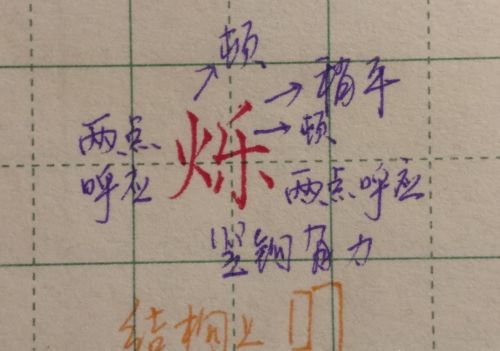 顿
稍平
顿
两点
呼应
烁
两点呼应
竖钩有力
结构上